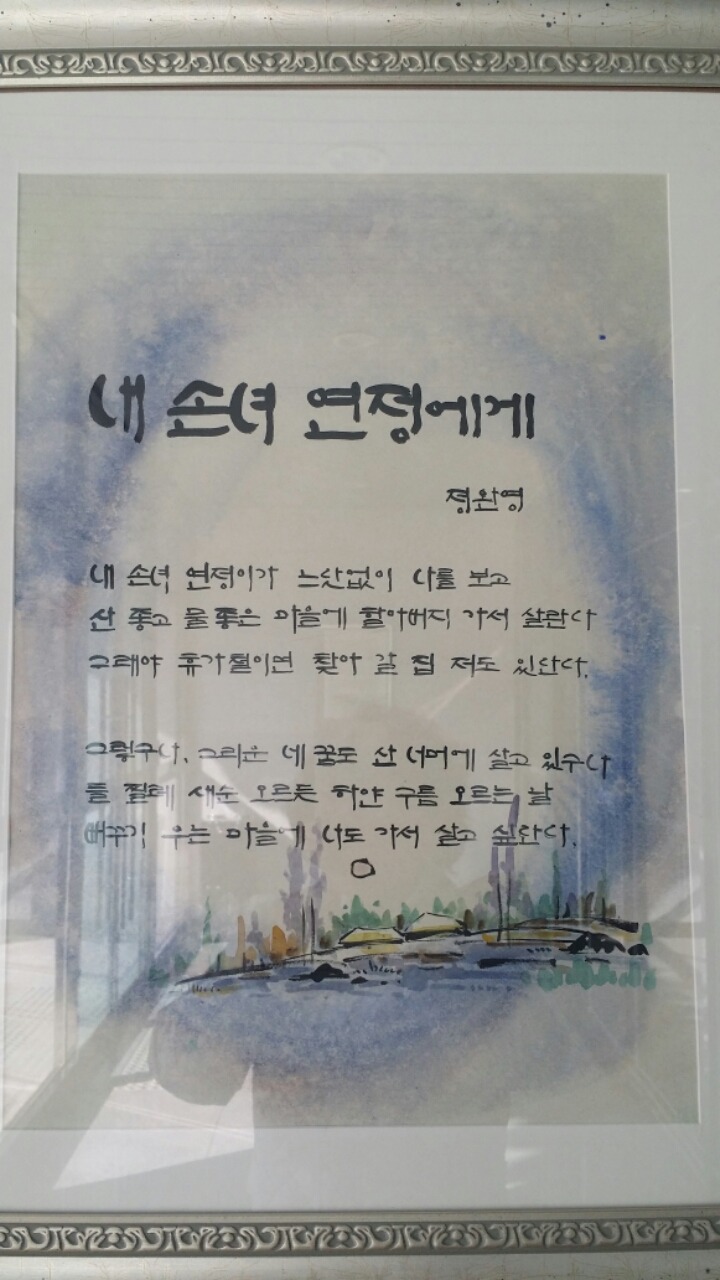 내 손녀 연정에게
정완영
내 손녀 연정이가 느닷없이 나를 보고
산 좋고 물 좋은 마을에 할아버지 가서 살란다
그래야 휴가철이면 찾아 갈 집 저도 있단다.
그렇구나, 그리운 네 꿈도 산 너머에 살고 있구나
들 찔레 새순 오르듯 하얀 구름 오르는 날
뻐꾸기 우는 마을에 나도 가서 살고 싶단다.